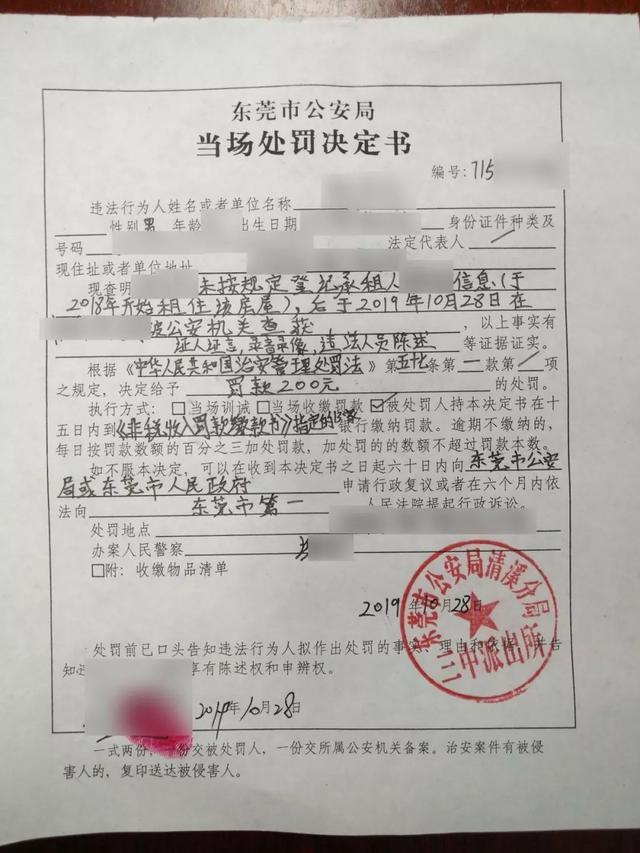 东莞市公安局
当场处罚决定书
编号:715
违法行为人姓名或者单位名称
性别 男 年龄 出生日期 身份证件种类及
号码 法定代表人
现住址或者单位地址
现查明 未按规定登记承租人 信息(于
2018年开始租住该房屋),后于2019年10月28日在
被公安机关查获 ,以上事实有
证人证言,录音录像,违法人员陈述 等证据证实。
根据《中华人民共和国治安管理处罚法》第五十七条第一款第 项
之规定,决定给予 罚款200元 的处罚。
执行方式:□当场训诫 □当场收缴罚款 ☑被处罚人持本决定书在十
五日内到《非税收入罚款缴款书》指定的 银行缴纳罚款。逾期不缴纳的,
每日按罚款数额的百分之三加处罚款,加处罚的的数额不超过罚款本数。
如不服本决定,可以在收到本决定书之日起六十日内向东莞市公安
局或东莞市人民政府 申请行政复议或者在六个月内依
法向 东莞市第一 人民法院提起行政诉讼。
处罚地点
办案人民警察
□附:收缴物品清单
2019年10月28日
东莞市公安局清溪分局
三中派出所
处罚前已口头告知违法行为人拟作出处罚的事实、理由和依据,并告
知违 享有陈述权和申辨权。
2019年10月28日
一式两份,一份交被处罚人,一份交所属公安机关备案。治安案件有被侵
害人的,复印送达被侵害人。